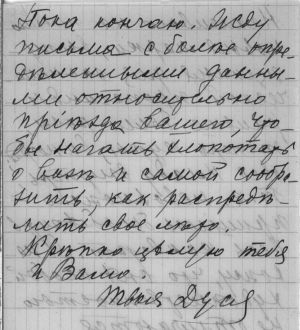 Пока кончаю. Жду
письма с более опре-
дѣленными данны-
ми относительно
пріѣзда вашего, что-
бы начать хлопотать
о визѣ и самой сообра-
зить, как распредѣ-
лить свое лѣто.
Крѣпко цѣлую тебя
и Валю.
Твоя Дуся